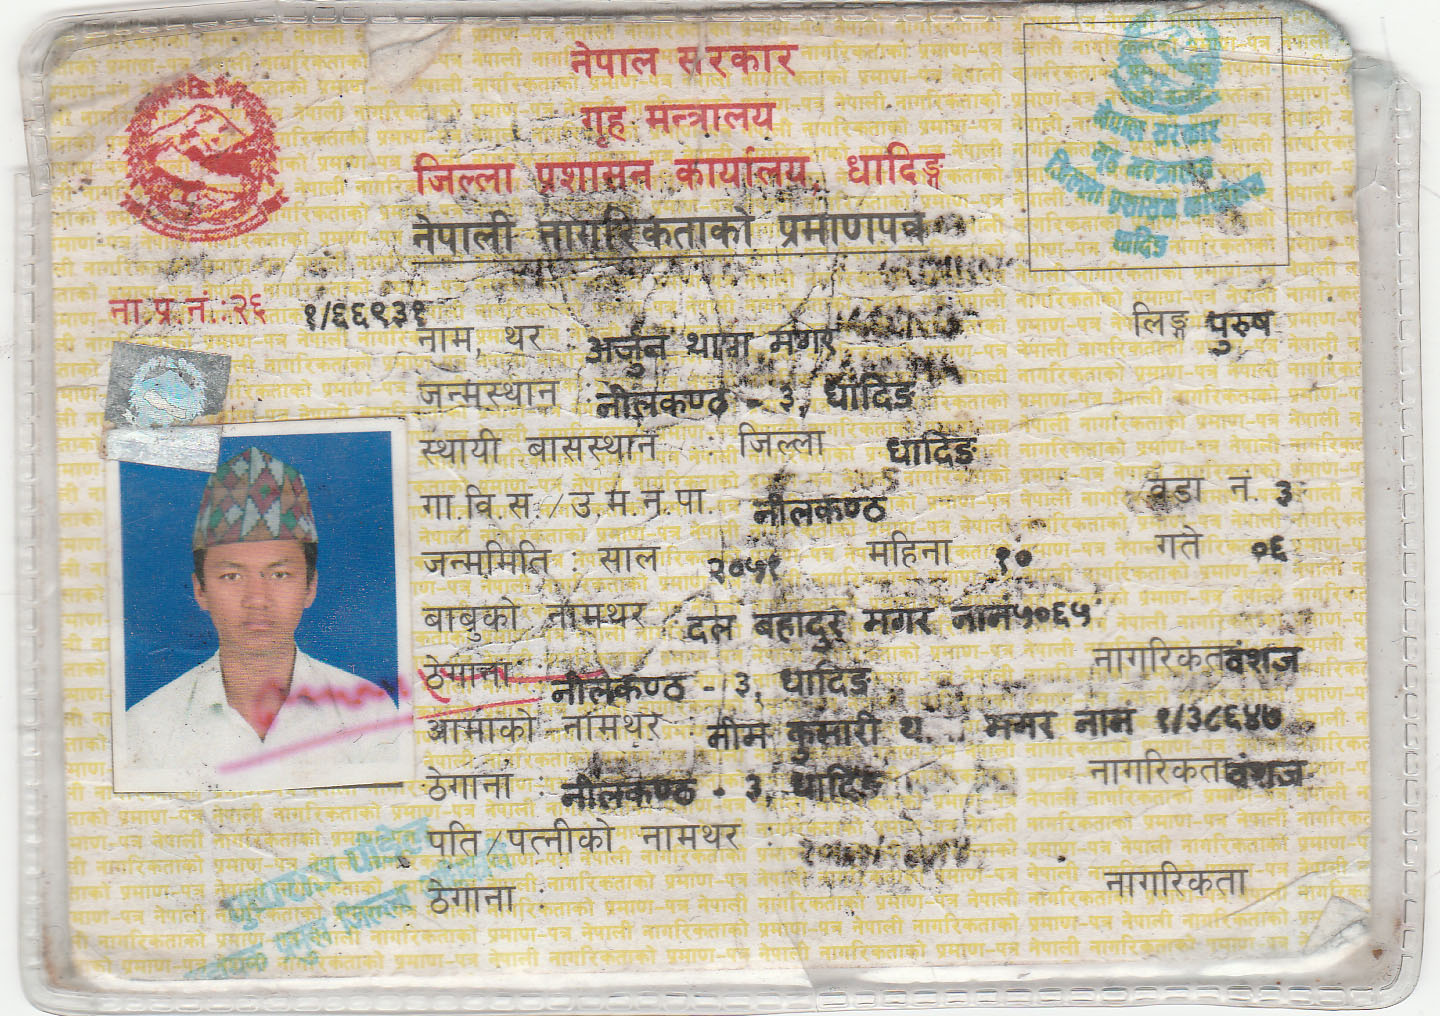 नेपाल सरकार
गृह मन्त्रालय
जिल्ला प्रशासन कार्यालय, धादिङ्ग
नेपाल सरकार
गृह मन्त्रालय
जिल्ला प्रशासन कार्यालय
धादिङ
नेपाली नागरिकताको प्रमाणपत्र
ना.प्र.नं.:२६ १/६६९३१
नाम, थर : अर्जुन थापा मगर लिङ्ग पुरुष
जन्मस्थान नीलकण्ठ - ३, धादिङ
स्थायी बासस्थान : जिल्ला धादिङ
गा.वि.स./उ.म.न.पा. नीलकण्ठ वडा नं. ३
जन्ममिति : साल २०५१ महिना १० गते ०६
बाबुको नामथर दल बहादुर मगर नानं५०६५
ठेगाना : नीलकण्ठ - ३, धादिङ नागरिकता वंशज
आमाको नामथर मीम कुमारी थ. मगर नानं १/३८६४७
ठेगाना : नीलकण्ठ - ३, धादिङ नागरिकता वंशज
पति/पत्नीको नामथर :
ठेगाना : नागरिकता